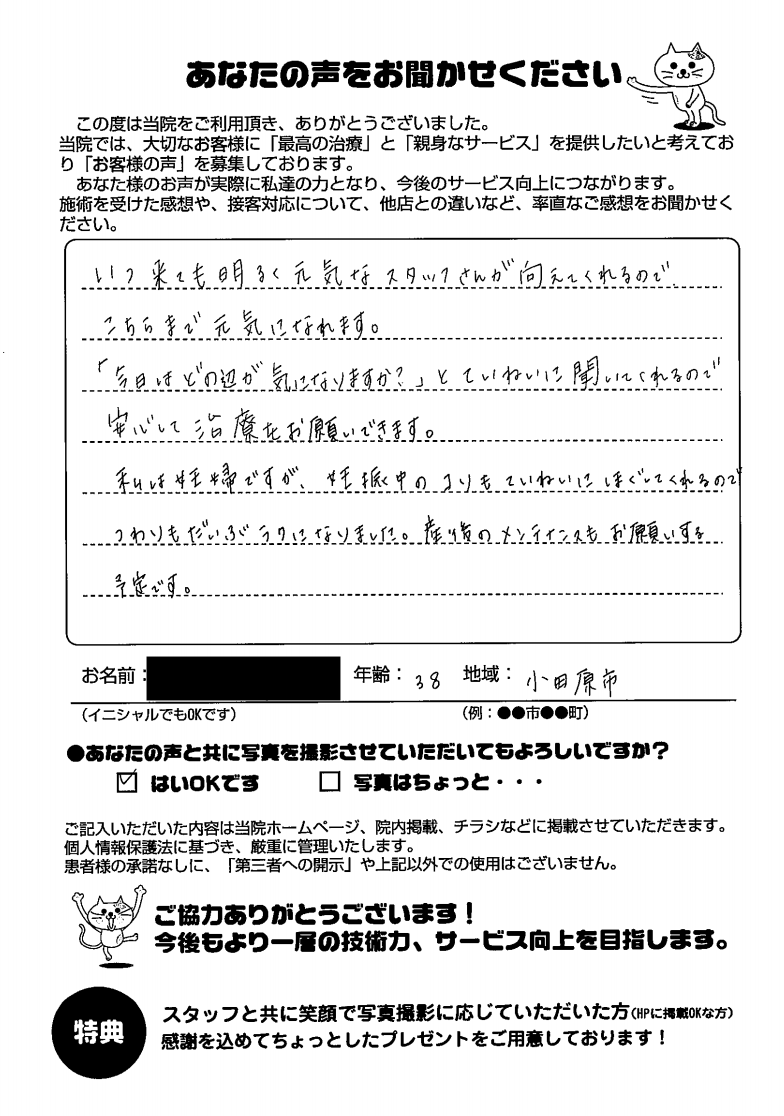 あなたの声をお聞かせください
この度は当院をご利用頂き、ありがとうございました。
当院では、大切なお客様に「最高の治療」と「親身なサービス」を提供したいと考えてお
り「お客様の声」を募集しております。
あなた様のお声が実際に私達の力となり、今後のサービス向上につながります。
施術を受けた感想や、接客対応について、他店との違いなど、率直なご感想をお聞かせく
ださい。
いつ来ても明るく元気なスタッフさんが向えてくれるので、
こちらまで元気になれます。
「今日はどの辺が気になりますか?」とていねいに聞いてくれるので
安心して治療をお願いできます。
私は妊婦ですが、妊娠中のコリもていねいにほぐしてくれるので
つわりもだいぶラクになりました。産後のメンテナンスもお願いする
予定です。
お名前: 年齢: 38 地域: 小田原市
(イニシャルでもOKです) (例:●●市●●町)
●あなたの声と共に写真を撮影させていただいてもよろしいですか?
☑ はいOKです □ 写真はちょっと・・・
ご記入いただいた内容は当院ホームページ、院内掲載、チラシなどに掲載させていただきます。
個人情報保護法に基づき、厳重に管理いたします。
患者様の承諾なしに、「第三者への開示」や上記以外での使用はございません。
ご協力ありがとうございます!
今後もより一層の技術力、サービス向上を目指します。
特典
スタッフと共に笑顔で写真撮影に応じていただいた方(HPに掲載OKな方)
感謝を込めてちょっとしたプレゼントをご用意しております!